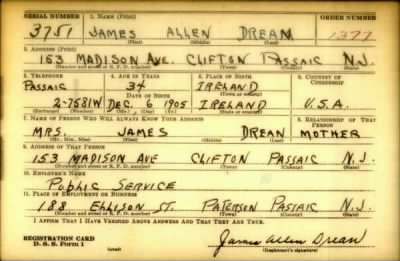 SERIAL NUMBER 1. NAME (Print) ORDER NUMBER
3751 JAMES ALLEN DREAN 1377
(First) (Middle) (Last)
2. ADDRESS (Print)
153 MADISON AVE. CLIFTON PASSAIC N.J.
(Number and street or R. F. D. number) (Town) (County) (State)
3. TELEPHONE 4. AGE IN YEARS 5. PLACE OF BIRTH 6. COUNTRY OF CITIZENSHIP
PASSAIC 34 IRELAND
DATE OF BIRTH (Town or county)
2-7581W DEC. 6 1905 IRELAND U.S.A.
(Mo.) (Day) (Yr.) (State or country)
7. NAME OF PERSON WHO WILL ALWAYS KNOW YOUR ADDRESS 8. RELATIONSHIP OF THAT PERSON
MRS. JAMES DREAN MOTHER
(Mr., Mrs., Miss) (First) (Middle) (Last)
9. ADDRESS OF THAT PERSON
153 MADISON AVE CLIFTON PASSAIC N.J.
(Number and street or R. F. D. number) (Town) (County) (State)
10. EMPLOYER'S NAME
PUBLIC SERVICE
11. PLACE OF EMPLOYMENT OR BUSINESS
188 ELLISON ST. PATERSON PASSAIC N.J.
(Number and street or R. F. D. number) (Town) (County) (State)
I AFFIRM THAT I HAVE VERIFIED ABOVE ANSWERS AND THAT THEY ARE TRUE.
REGISTRATION CARD
D. S. S. Form 1 (over) James Allen Drean
(Registrant's signature)